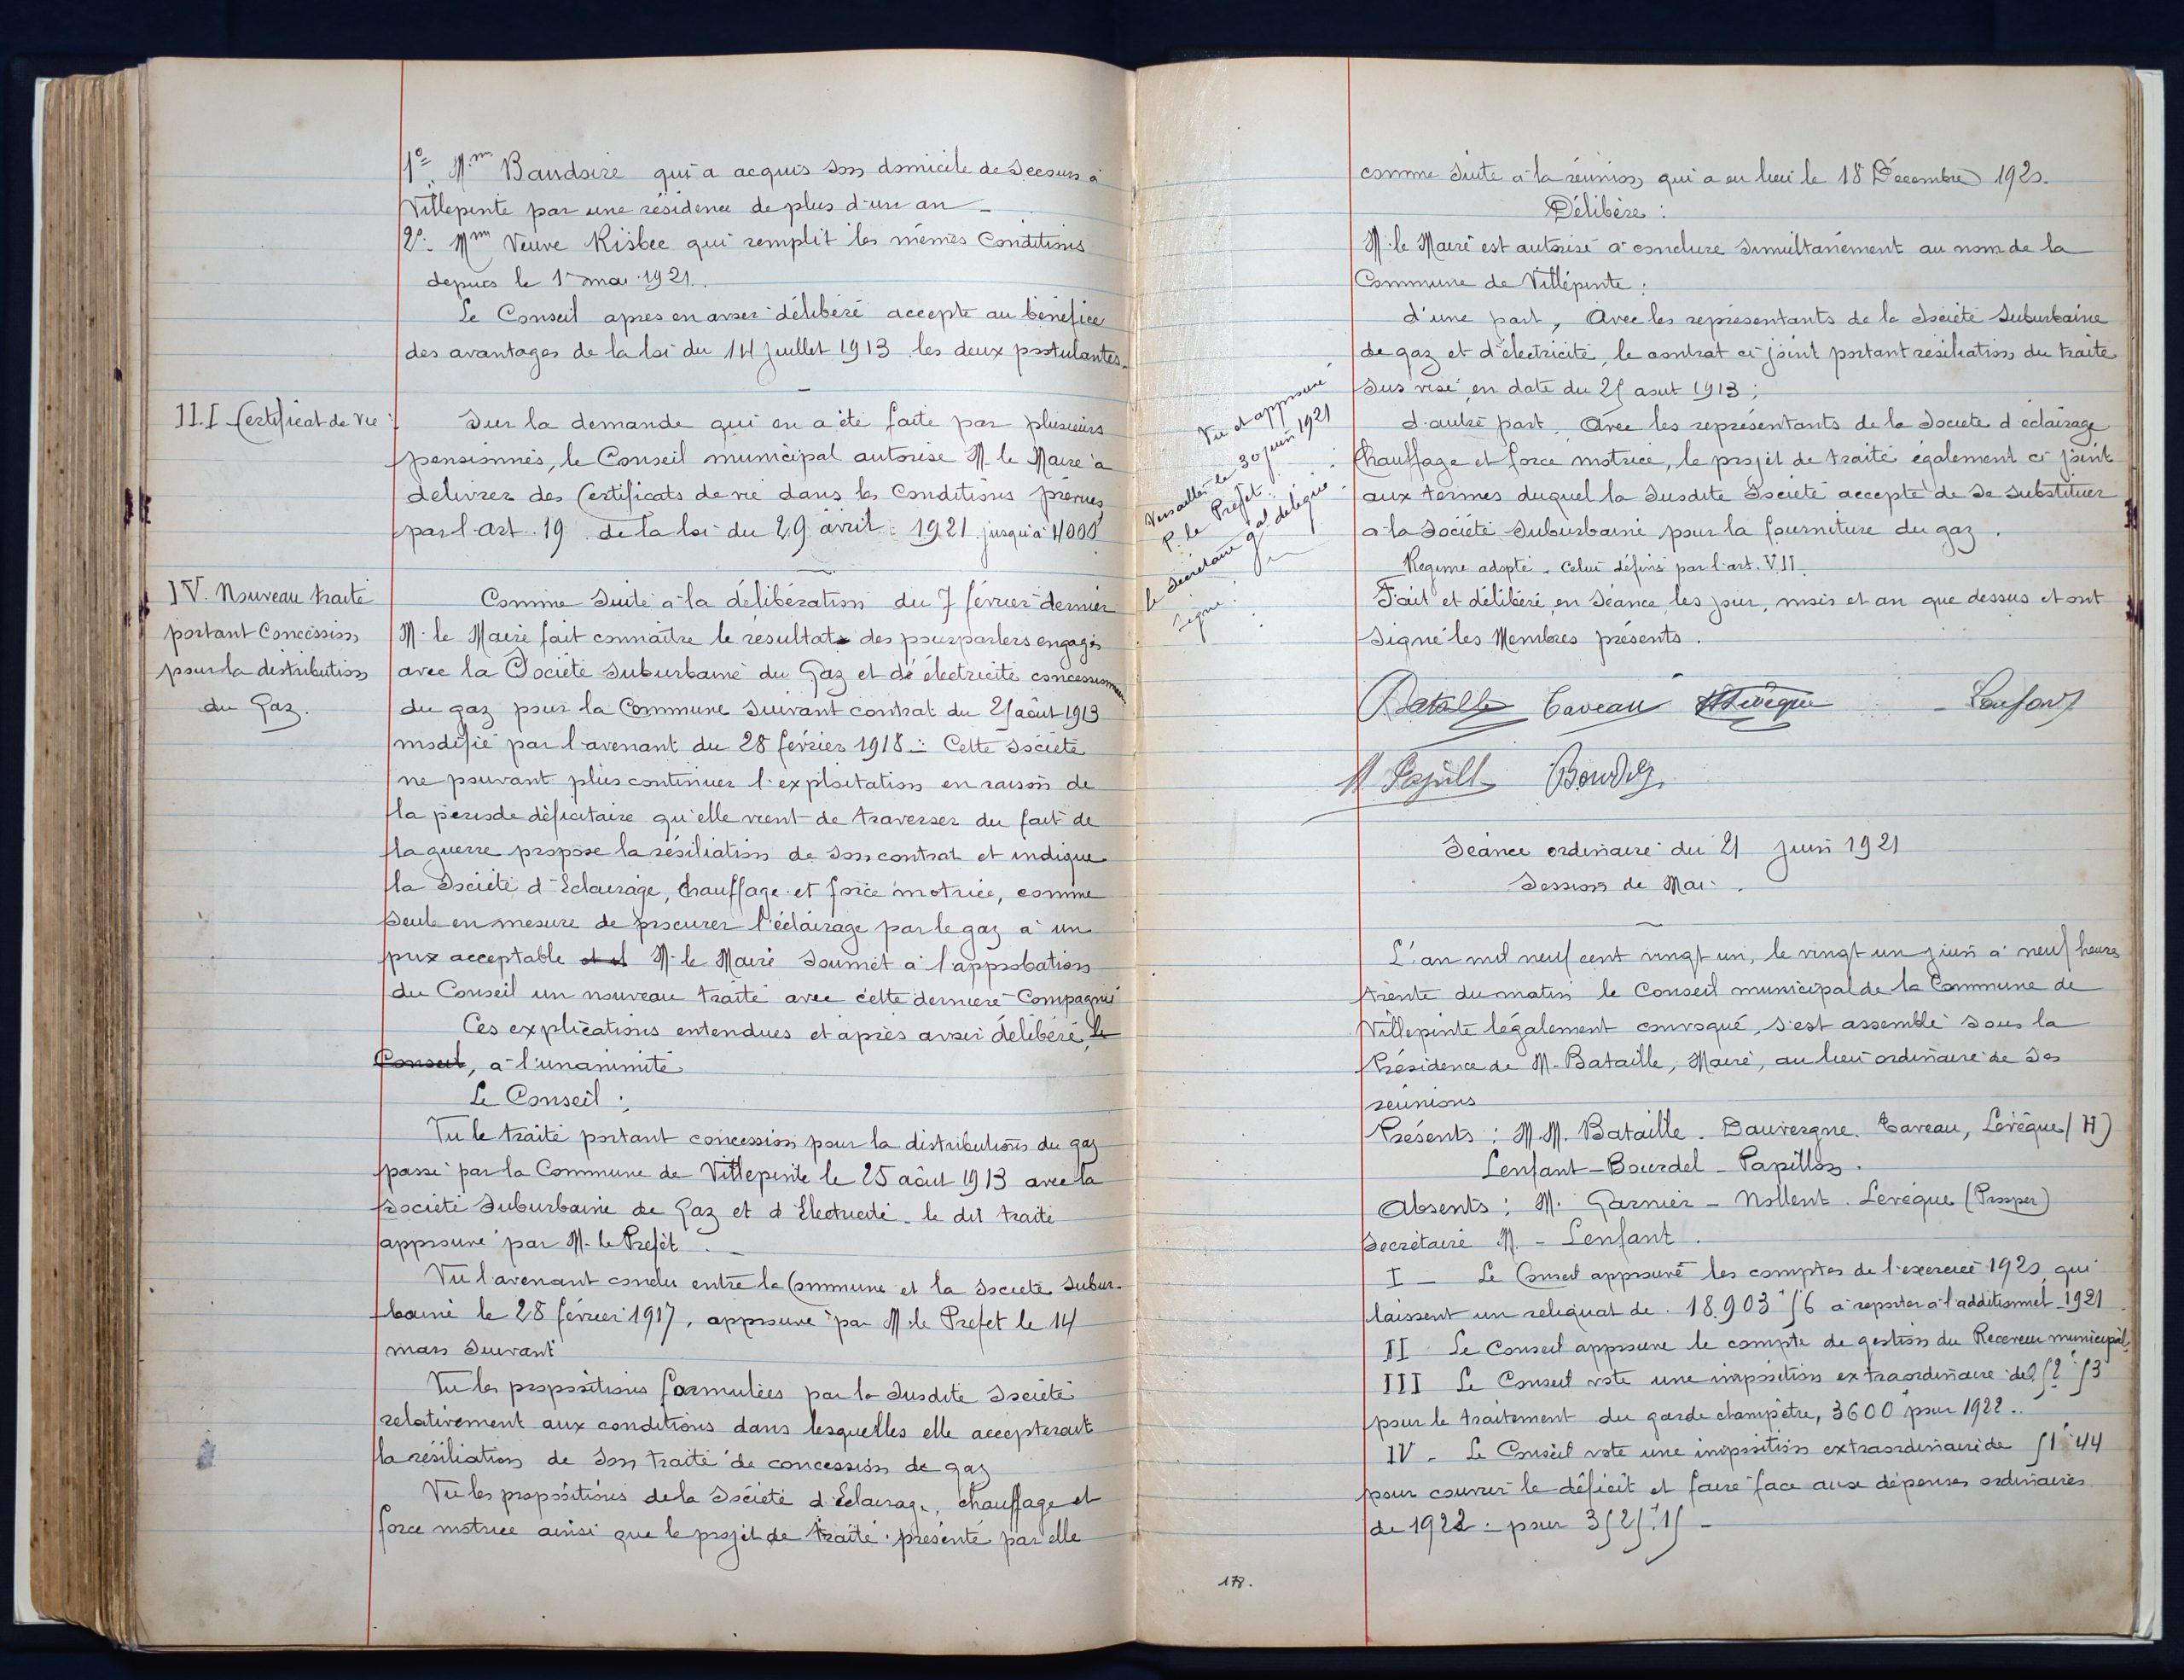 1º M.me Baudoire qui a acquis son domicile de Secours à
Villepinte par une résidence de plus d'un an _
2º M.me Veuve Risbec qui remplit les mêmes Conditions
depuis le 1er mai 1921.
Le Conseil après en avoir délibéré accepte au bénéfice
des avantages de la loi du 14 Juillet 1913 les deux postulantes.
III. Certificat de vie :
Sur la demande qui en a été faite par plusieurs
pensionnés, le Conseil municipal autorise M. le Maire à
délivrer des Certificats de vie dans les Conditions prévues
par l'art. 19 de la loi du 29 avril 1921 jusqu'à 4000
IV. Nouveau traité
portant Concession
pour la distribution
du Gaz.
Comme Suite à la délibération du 7 février dernier
M. le Maire fait connaître le résultat des pourparlers engagés
avec la Société Suburbaine du Gaz et d'électricité concessionnaire
du gaz pour la Commune Suivant contrat du 25 août 1913
modifié par l'avenant du 28 février 1918 : Cette Société
ne pouvant plus continuer l'exploitation en raison de
la période déficitaire qu'elle vient de traverser du fait de
la guerre propose la résiliation de Son contrat et indique
la Société d'Eclairage, Chauffage et force motrice, comme
Seule en mesure de procurer l'éclairage par le gaz à un
prix acceptable et M. le Maire Soumet à l'approbation
du Conseil un nouveau traité avec cette dernière Compagnie
Ces explications entendues et après avoir délibéré, le
Conseil, à l'unanimité
Le Conseil :
Vu le traité portant concession pour la distribution du gaz
passé par la Commune de Villepinte le 25 août 1913 avec la
Société Suburbaine de Gaz et d'Electricité _ le dit traité
approuvé par M. le Préfet . _
Vu l'avenant conclu entre la Commune et la Société Subur-
baine le 28 février 1917, approuvé par M. le Prefet le 14
mars Suivant
Vu les propositions formulées par la Susdite Société
relativement aux conditions dans lesquelles elle accepterait
la résiliation de Son traité de concession de gaz
Vu les propositions de la Société d'Eclairage, chauffage et
force motrice ainsi que le projet de traité présenté par elle
comme Suite à la réunion qui a eu lieu le 18 Décembre 1920.
Délibère :
M. le Maire est autorisé à conclure Simultanément au nom de la
Commune de Villepinte :
d'une part, Avec les représentants de la Société Suburbaine
de gaz et d'électricité, le contrat ci-joint portant résiliation du traité
Sus visé en date du 25 aout 1913 ;
d'autre part, Avec les représentants de la Société d'éclairage
Chauffage et force motrice, le projet de traité également ci-joint
aux termes duquel la Susdite Société accepte de Se Substituer
à la Société Suburbaine pour la fourniture du gaz .
Regime adopté _ Celui défini par l'art. VII
Fait et délibéré en Séance, les jour, mois et an que dessus et ont
Signé les Membres présents .
Vu et approuvé
Versailles le 30 juin 1921
P. le Préfet :
le Secrétaire gal délégué
Signé :
Bataille Taveau HLévêque Lenfant
A Papillon Bourdel
Séance ordinaire du 21 Juin 1921
Session de Mai .
L'an mil neuf cent vingt un, le vingt un juin à neuf heures
trente du matin le Conseil municipal de la Commune de
Villepinte légalement convoqué, S'est assemblé Sous la
Présidence de M. Bataille, Maire, au lieu ordinaire de Ses
réunions
Présents : M.M. Bataille . Dauvergne . Taveau, Lévêque (H)
Lenfant _ Bourdel _ Papillon .
Absents : M. Garnier _ Nollent . Leveque (Prosper)
Secrétaire M. _ Lenfant .
I _ Le Conseil approuve les comptes de l'exercice 1920, qui
laissent un reliquat de 18.903f56 à reporter à l'additionnel 1921
II Le Conseil approuve le compte de gestion du Receveur municipal.
III Le Conseil vote une imposition extraordinaire de 52f53
pour le traitement du garde champêtre, 3600f pour 1922 ..
IV _ Le Conseil vote une imposition extraordinaire de 51f44
pour couvrir le déficit et faire face aux dépenses ordinaires
de 1922 _ pour 3525f.15 _
178.